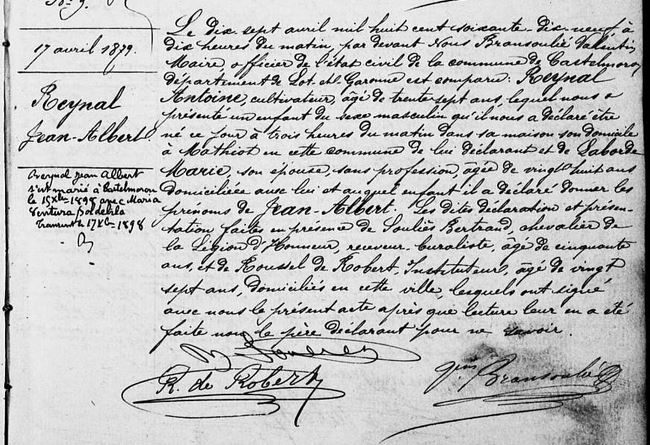 17 avril 1879.
Reynal
Jean-Albert
Reynal Jean Albert
s'est marié à Castelmoron
le 15 Xbre 1898 avec Maria
Ventura
Transcrit le 17 Xbre 1898
Le dix sept avril mil huit cent soixante-dix-neuf à
dix heures du matin, par devant Nous Bransoulié Valentin
Maire, officier de l'état civil de la commune de Castelmoron
département de Lot-et-Garonne est comparu: Reynal
Antoine, cultivateur, âgé de trente sept ans, lequel nous a
présenté un enfant du sexe masculin qu'il nous a déclaré être
né ce jour à trois heures du matin dans sa maison son domicile
à Mathiot en cette commune de lui déclarant et de Laborde
Marie, son épouse, sans profession, âgée de vingt huit ans
domiciliée avec lui et auquel enfant il a déclaré donner les
prénoms de Jean-Albert. Les dites déclaration et présen-
tation faites en présence de Souliès Bertrand, chevalier de
la Légion d'Honneur, receveur-buraliste, âgé de cinquante
ans, et de Roussel de Robert, Instituteur, âgé de vingt
sept ans, domiciliés en cette ville, lesquels ont signé
avec nous le présent acte après que lecture leur en a été
faite non le père déclarant pour ne savoir.
R. de Robert
Bransoulié